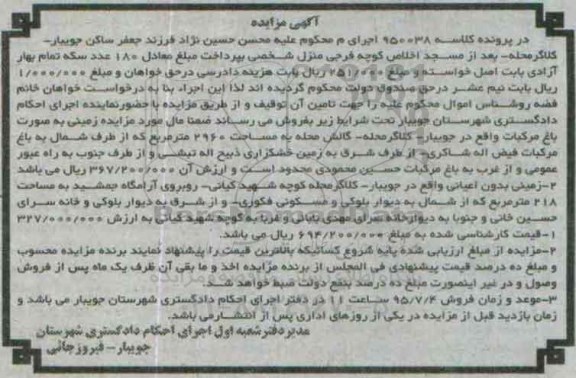 آگهی مزایده
در پرونده کلاسه ۹۵۰۰۳۸ اجرای م محکوم علیه محسن حسین نژاد فرزند جعفر ساکن جویبار-
کلاگرمحله- بعد از مسجد اخلاص کوچه فرجی منزل شخصی بپرداخت مبلغ معادل ۱۸۰ عدد سکه تمام بهار
آزادی بابت اصل خواسته و مبلغ ریال بابت هزینه دادرسی درحق خواهان و مبلغ ۱/۰۰۰/۰۰۰
ریال بابت نیم عشر درحق صندوق دولت محکوم گردیده اند لذا این اجراء بنا به درخواست خواهان خانم
فضه روشناس اموال محکوم علیه را جهت تامین آن توقیف و از طریق مزایده با حضور نماینده اجرای احکام
دادگستری شهرستان جویبار تحت شرایط زیر بفروش می رساند ضمنا مال مورد مزایده زمینی به صورت
باغ مرکبات واقع در جویبار- کلاگرمحله- گالش محله به مساحت ۲۹۶۰ مترمربع که از طرف شمال به باغ
مرکبات فیض اله شاکری- از طرف شرق به زمین خشکزاری ذبیح اله تپشی و از طرف جنوب به راه عبور
عمومی و از غرب به باغ مرکبات حسین محمودی محدود است و ارزش آن ۳۶۷/۲۰۰/۰۰۰ ریال می باشد
۲-زمینی بدون اعیانی واقع در جویبار- کلاگرمحله کوچه شهید کیانی- روبروی آرامگاه جمشید به مساحت
۲۱۸ مترمربع که از شمال به دیوار بلوکی و مسکونی فکوری- و از شرق به دیوار بلوکی و خانه سرای
حسین خانی و جنوبا به دیوارخانه سرای مهدی بابائی و غربا به کوچه شهید کیانی به ارزش ۳۲۷/۰۰۰/۰۰۰
۱-قیمت کارشناسی شده به مبلغ ۶۹۴/۲۰۰/۰۰۰ ریال می باشد.
۲-مزایده از مبلغ ارزیابی شده پایه شروع کسانیکه بالاترین قیمت را پیشنهاد نمایند برنده مزایده محسوب
و مبلغ ده درصد قیمت پیشنهادی فی المجلس از برنده مزایده اخذ و ما بقی آن ظرف یک ماه پس از فروش
وصول و در غیر اینصورت مبلغ ده درصد بنفع دولت ضبط خواهد شد.
۳-موعد و زمان فروش ۹۵/۷/۴ ساعت ۱۱ در دفتر اجرای احکام دادگستری شهرستان جویبار می باشد و
زمان بازدید قبل از مزایده در یکی از روزهای اداری پس از انتشار می باشد.
مدیر دفتر شعبه اول اجرای احکام دادگستری شهرستان
جویبار- فیروزجائی